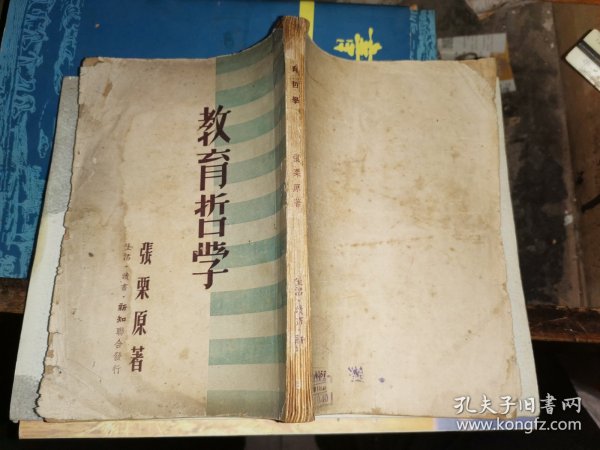 教育哲学
張栗原著
生活·讀書·新知聯合發行
育哲學
張栗原著
生活·讀書·新
孔夫子旧书网
www.kongfz.com